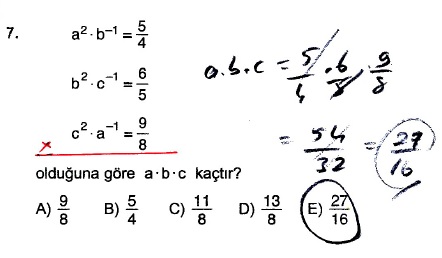 7.
a²·b⁻¹ = 5/4
b²·c⁻¹ = 6/5
c²·a⁻¹ = 9/8
x
olduğuna göre a·b·c kaçtır?
A) 9/8 B) 5/4 C) 11/8 D) 13/8 E) 27/16
a.b.c = 5/4 . 6/5 . 9/8
= 54/32 = 27/16